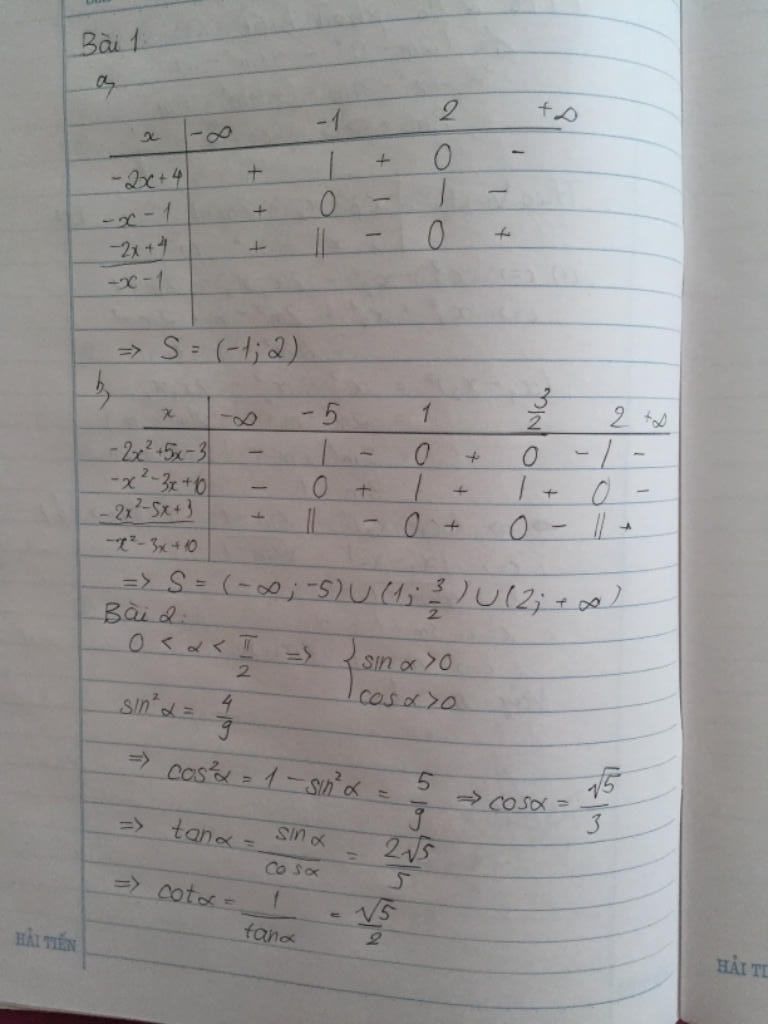 Bài 1:
a,
x -∞ -1 2 +∞
-2x+4 + | + 0 -
-x-1 + 0 - | -
-2x+4 / -x-1 + || - 0 +
=> S = (-1; 2)
b,
x -∞ -5 1 3/2 2 +∞
-2x²+5x-3 - | - 0 + 0 - | -
-x²-3x+10 - 0 + | + | + 0 -
-2x²-5x+3 / -x²-3x+10 + || - 0 + 0 - || +
=> S = (-∞; -5) ∪ (1; 3/2) ∪ (2; +∞)
Bài 2:
0 < α < π/2 => { sin α > 0
cos α > 0
sin²α = 4/9
=> cos²α = 1 - sin²α = 5/9 => cosα = √5/3
=> tanα = sinα/cosα = 2√5/5
=> cotα = 1/tanα = √5/2
HẢI TIẾN